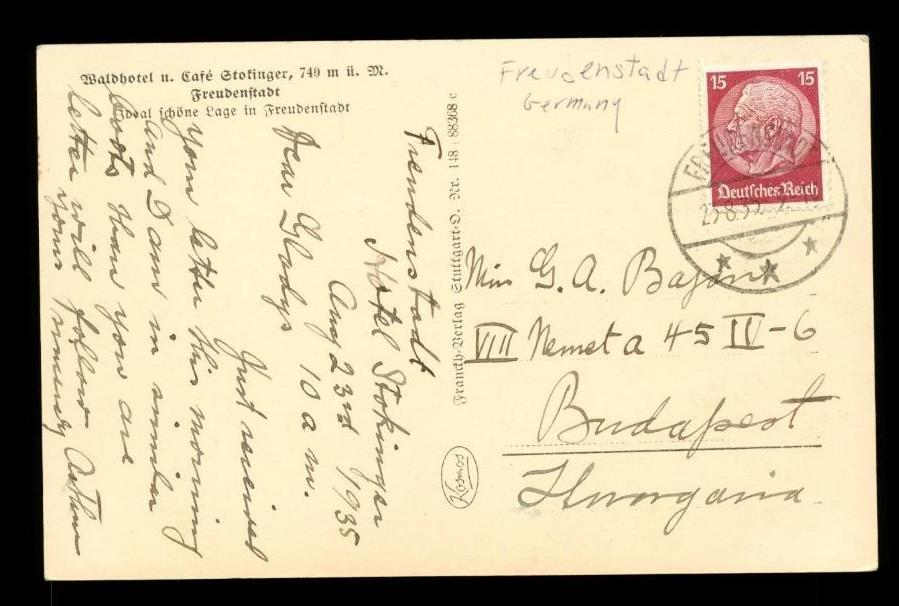 Waldhotel u. Café Stokinger, 749 m ü. M.
Freudenstadt
Ideal schöne Lage in Freudenstadt
Freudenstadt
Hotel Stokinger
Aug 23rd 1935
10 a m.
Dear Gladys
Just received
your letter this morning
and I am in similar
boots than you are
letter will follow
yours sincerely
Franckh-Verlag Stuttgart-O. Nr. 148 88368 c
Kosmos
Freudenstadt
Germany
15 15
Deutsches Reich
Miss G. A.
VIII Nemet a 45 IV-6
Budapest
Hungaria